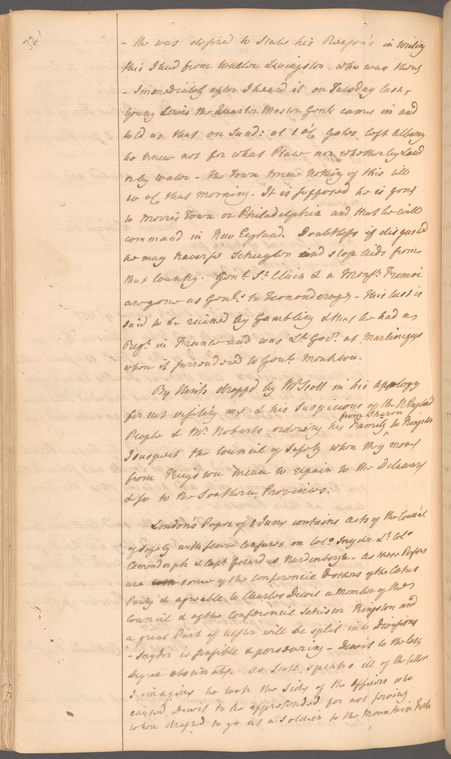 - He was desired to State his Reasons in writing
this I had from Walter Livingston who was there
- Immediately after I heard it on Tuesday last,
Young Lewis the Quarter Master Genl. came in and
told us that on Sund: at 1 o'C Gates left Albany
he knew not for what Place nor whether by Land
or by water - the Town knew nothing of this till
10 of that morning. It is supposed he is gone
to Morris Town or Philadelphia and that he will
command in New England. Doubtless if disgusted
he may Schuyler and stop aids from
that Country. Genl. St. Clair & a Monsr. Fremoi
are gone as Genls. to Ticonderoga - This last is
said to be ruined by Gambling & that he had a
Regt. in France and was Lt. Govr. at Martineque
when it surrendered to Genl. Monkton.
By Hints dropped by Mr. Scott in his apology
for not visiting my & his Suspicions of the N. England
People & Mr. Roberts ordering his Family from Sharon to Kingston
I suspect the Council of Safety when they move
from Kingston mean to repair to the Delaware
& so to the Southern Provinces.
Loudon's Paper of 1 June contains Acts of the Council
of Safety with severe Censures on Colo. Snyder Lt. Colo.
& Capt. Hardenbergh - As these Persons
are some of the Conference of the
Party & agreeable to Charles Dewit a Member of the
Council & of the Conferencie Schism Kingston and
a great Part of Ulster will be split into Divisions
- Snyder is passible & persevering - Dewit to the last
degree obstinate. As Scott speaks ill of the latter
I imagine he took the Side of the Officers who
caused Dewit to be apprehended for not
when drafted to go as a Soldier to the Mountain Forts